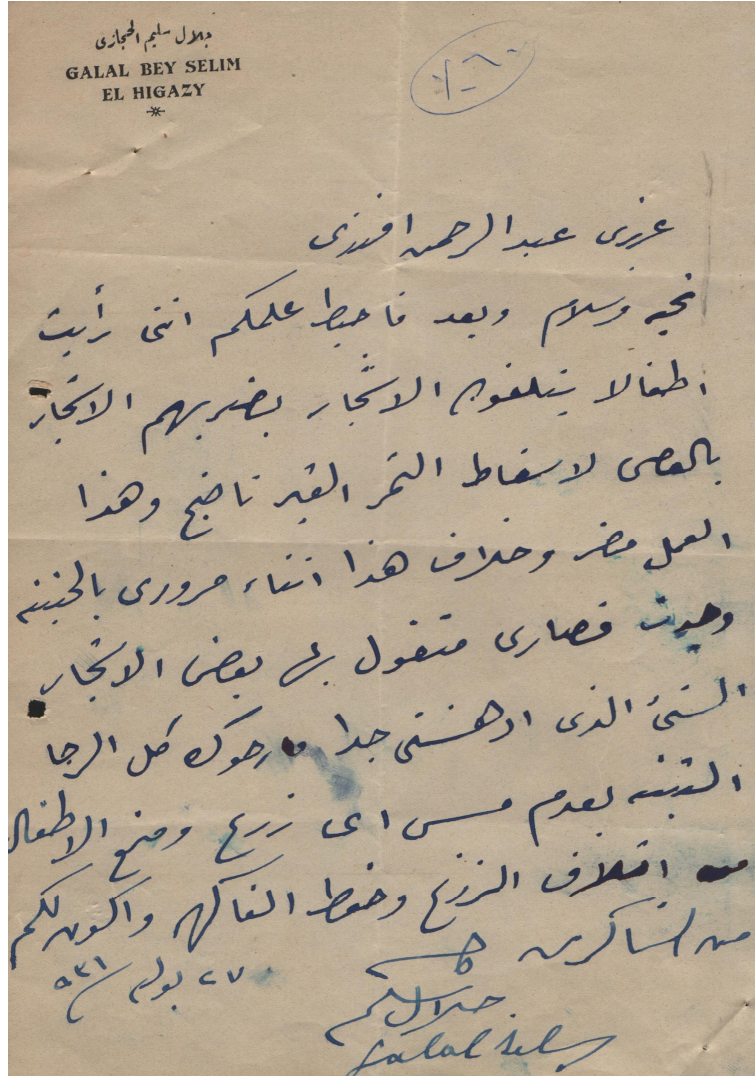 جلال سليم الحجازى
GALAL BEY SELIM
EL HIGAZY
عزيزى عبد الرحمن افندى
تحيه وسلام وبعد فاحيط علمكم اننى رأيت
اطفالا يتلفون الاشجار بضربهم الاشجار
بالعصى لاسقاط الثمر الغير ناضج وهذا
العمل مضر وخلاف هذا اثناء مرورى بالجنينه
وجدت قصارى منقول بها بعض الاشجار
الشئ الذى ادهشنى جدا فارجوك كل الرجا
التنبيه بعدم مس اى زرع ومنع الاطفال
من اتلاف الزرع وحفظ الفاكهه واكون لكم
من الشاكرين
٢٧ يوليو سنة ٩٣١
جلال سليم
Galal Selim